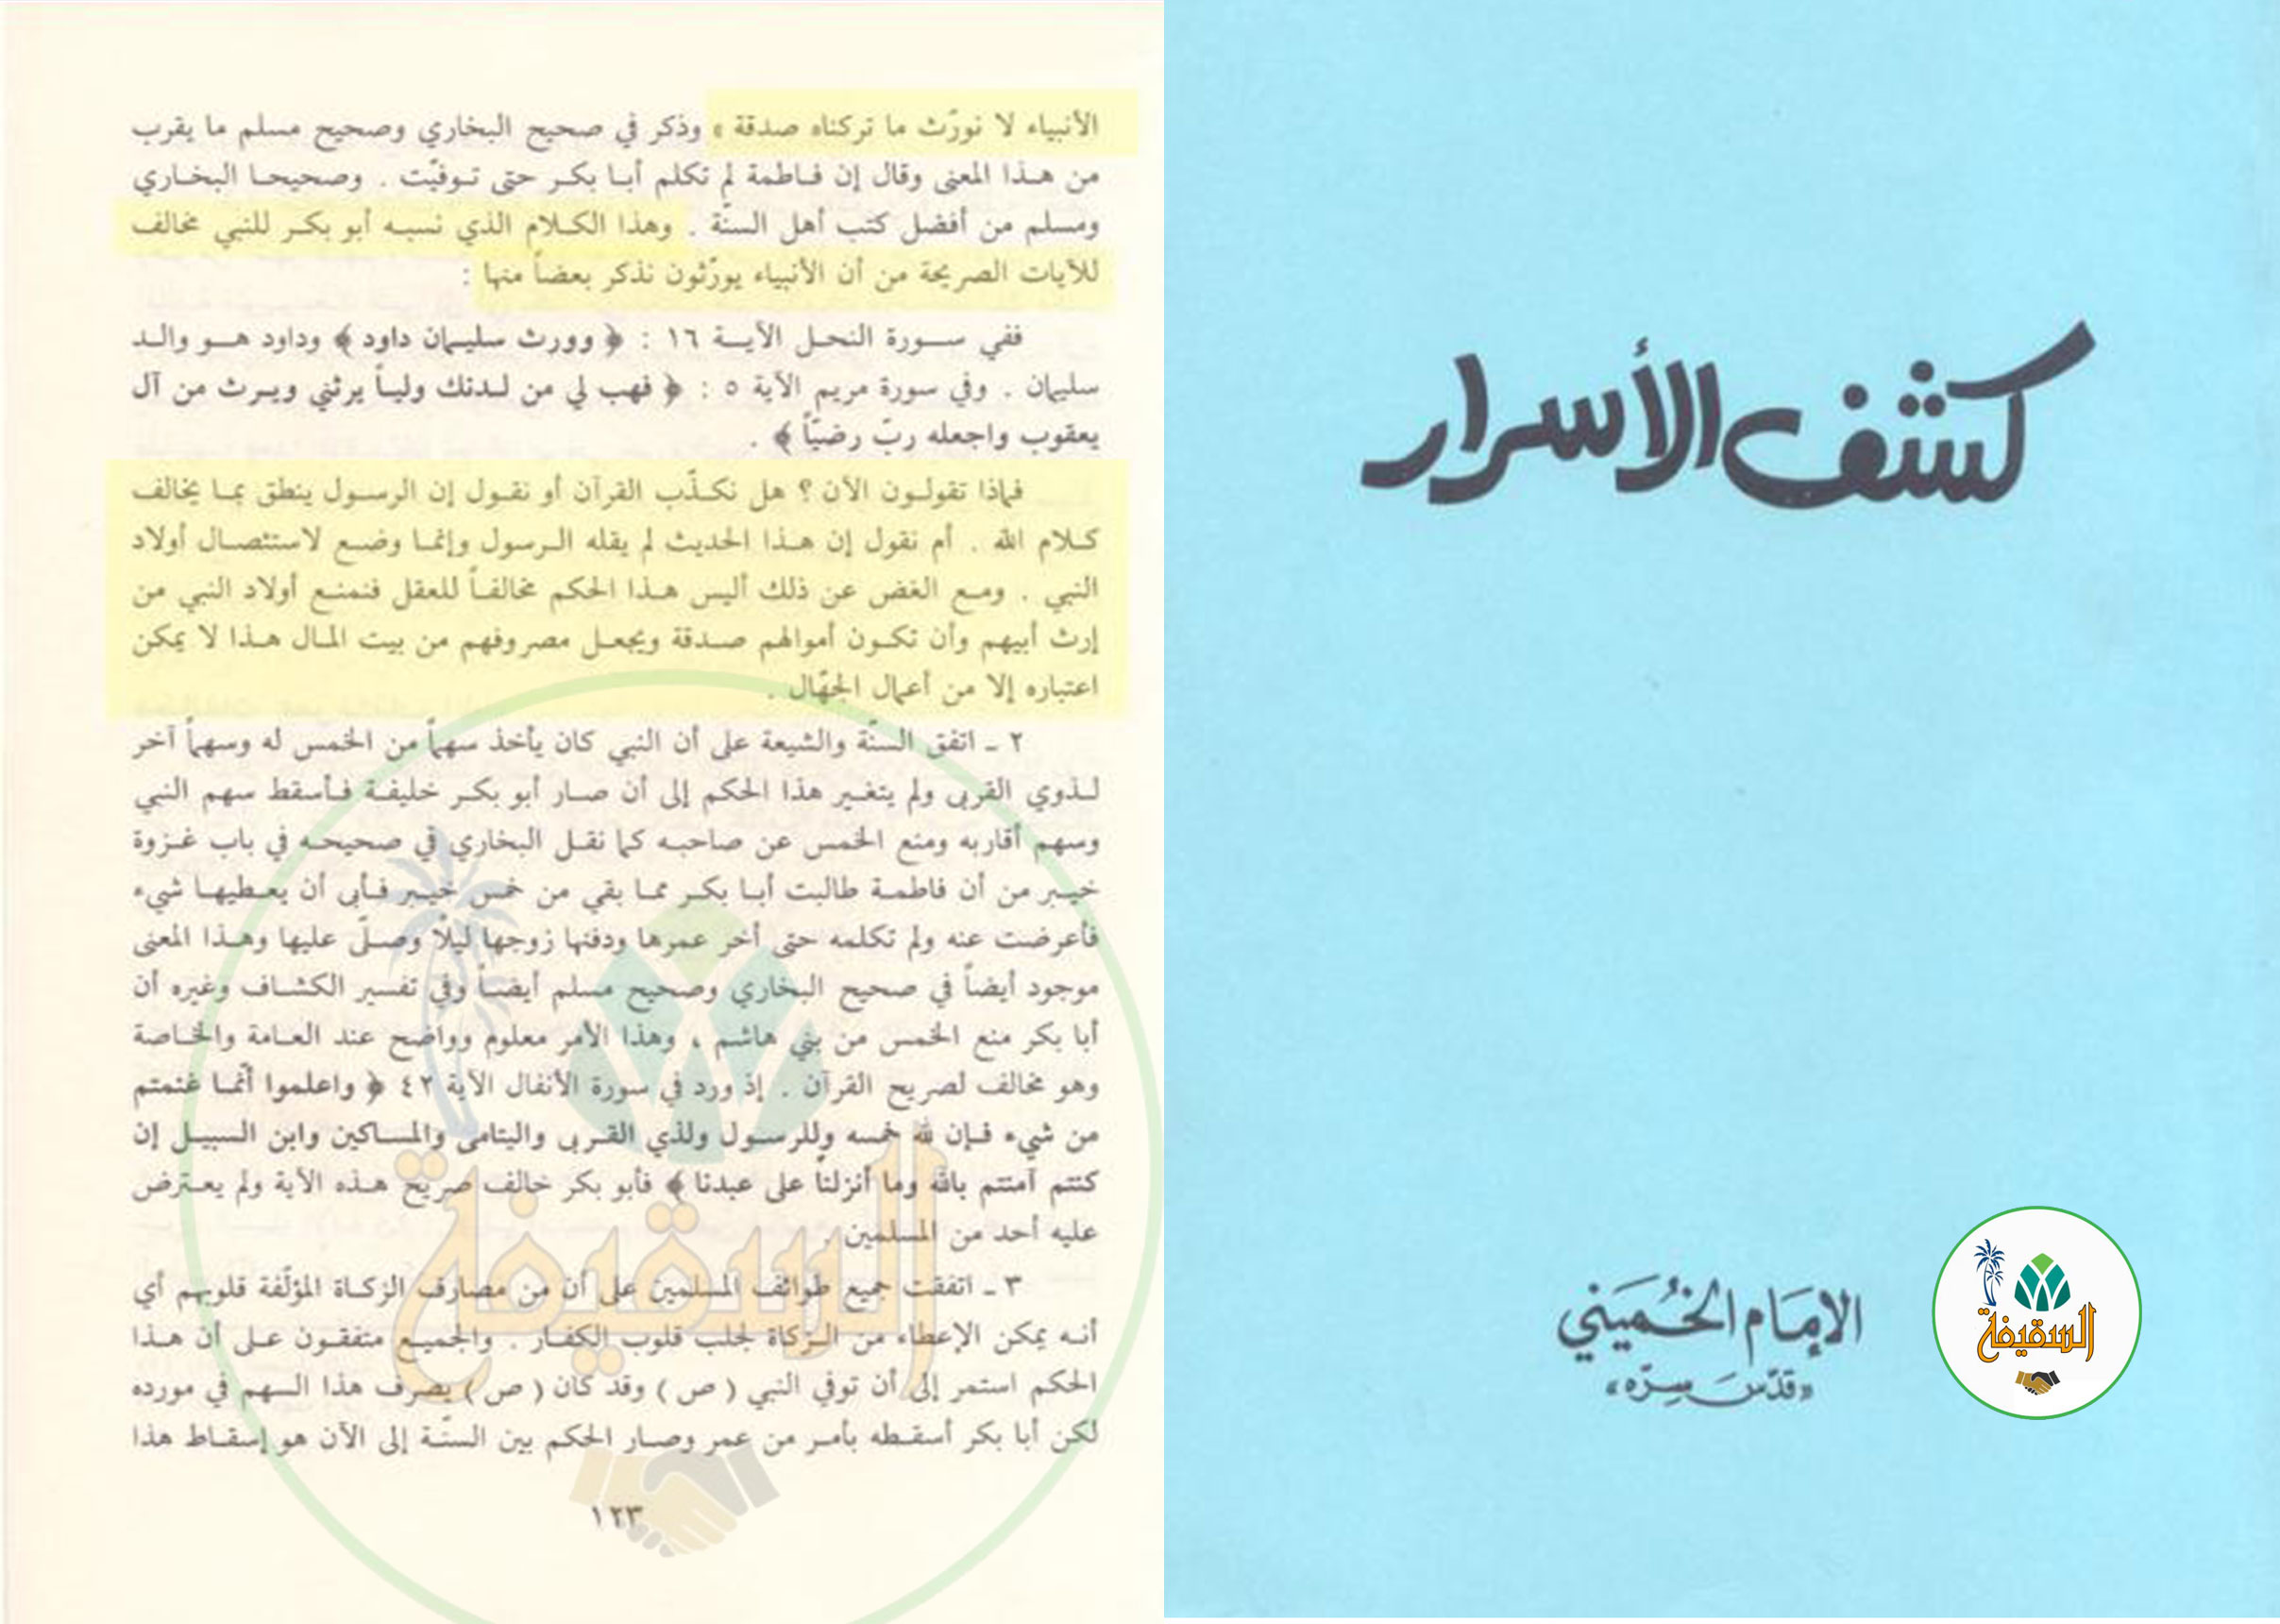 كشف الأسرار
الإمام الخميني
«قدّس سرّه»
السقيفة
الأنبياء لا نورّث ما تركناه صدقة » وذكر في صحيح البخاري وصحيح مسلم ما يقرب
من هذا المعنى وقال إن فاطمة لم تكلم أبا بكر حتى توفيّت . وصحيحا البخاري
ومسلم من أفضل كتب أهل السنّة . وهذا الكلام الذي نسبه أبو بكر للنبي مخالف
للآيات الصريحة من أن الأنبياء يورّثون نذكر بعضاً منها :
ففي سورة النحل الآية ١٦ : ﴿ وورث سليمان داود ﴾ وداود هو والد
سليمان . وفي سورة مريم الآية ٥ : ﴿ فهب لي من لدنك ولياً يرثني ويرث من آل
يعقوب واجعله ربّ رضيّاً ﴾ .
فماذا تقولون الآن ؟ هل نكذّب القرآن أو نقول إن الرسول ينطق بما يخالف
كلام الله . أم نقول إن هذا الحديث لم يقله الرسول وإنما وضع لاستئصال أولاد
النبي . ومع الغض عن ذلك أليس هذا الحكم مخالفاً للعقل فنمنع أولاد النبي من
إرث أبيهم وأن تكون أموالهم صدقة ويجعل مصروفهم من بيت المال هذا لا يمكن
اعتباره إلا من أعمال الجهّال .
٢ ـ اتفق السنّة والشيعة على أن النبي كان يأخذ سهماً من الخمس له وسهماً آخر
لذوي القربى ولم يتغير هذا الحكم إلى أن صار أبو بكر خليفة فأسقط سهم النبي
وسهم أقاربه ومنع الخمس عن صاحبه كما نقل البخاري في صحيحه في باب غزوة
خيبر من أن فاطمة طالبت أبا بكر مما بقي من خمس خيبر فأبى أن يعطيها شيء
فأعرضت عنه ولم تكلمه حتى أخر عمرها ودفنها زوجها ليلاً وصلّى عليها وهذا المعنى
موجود أيضاً في صحيح البخاري وصحيح مسلم أيضاً وفي تفسير الكشاف وغيره أن
أبا بكر منع الخمس من بني هاشم ، وهذا الأمر معلوم وواضح عند العامة والخاصة
وهو مخالف لصريح القرآن . إذ ورد في سورة الأنفال الآية ٤٢ ﴿ واعلموا أنّما غنمتم
من شيء فإن لله خمسه وللرسول ولذي القربى واليتامى والمساكين وابن السبيل إن
كنتم آمنتم بالله وما أنزلنا على عبدنا ﴾ فأبو بكر خالف صريح هذه الآية ولم يعترض
عليه أحد من المسلمين .
٣ ـ اتفقت جميع طوائف المسلمين على أن من مصارف الزكاة المؤلّفة قلوبهم أي
أنه يمكن الإعطاء من الزكاة لجلب قلوب الكفار . والجميع متفقون على أن هذا
الحكم استمر إلى أن توفي النبي ( ص ) وقد كان ( ص ) يصرف هذا السهم في مورده
لكن أبا بكر أسقطه بأمر من عمر وصار الحكم بين السنّة إلى الآن هو إسقاط هذا
السقيفة
١٢٣